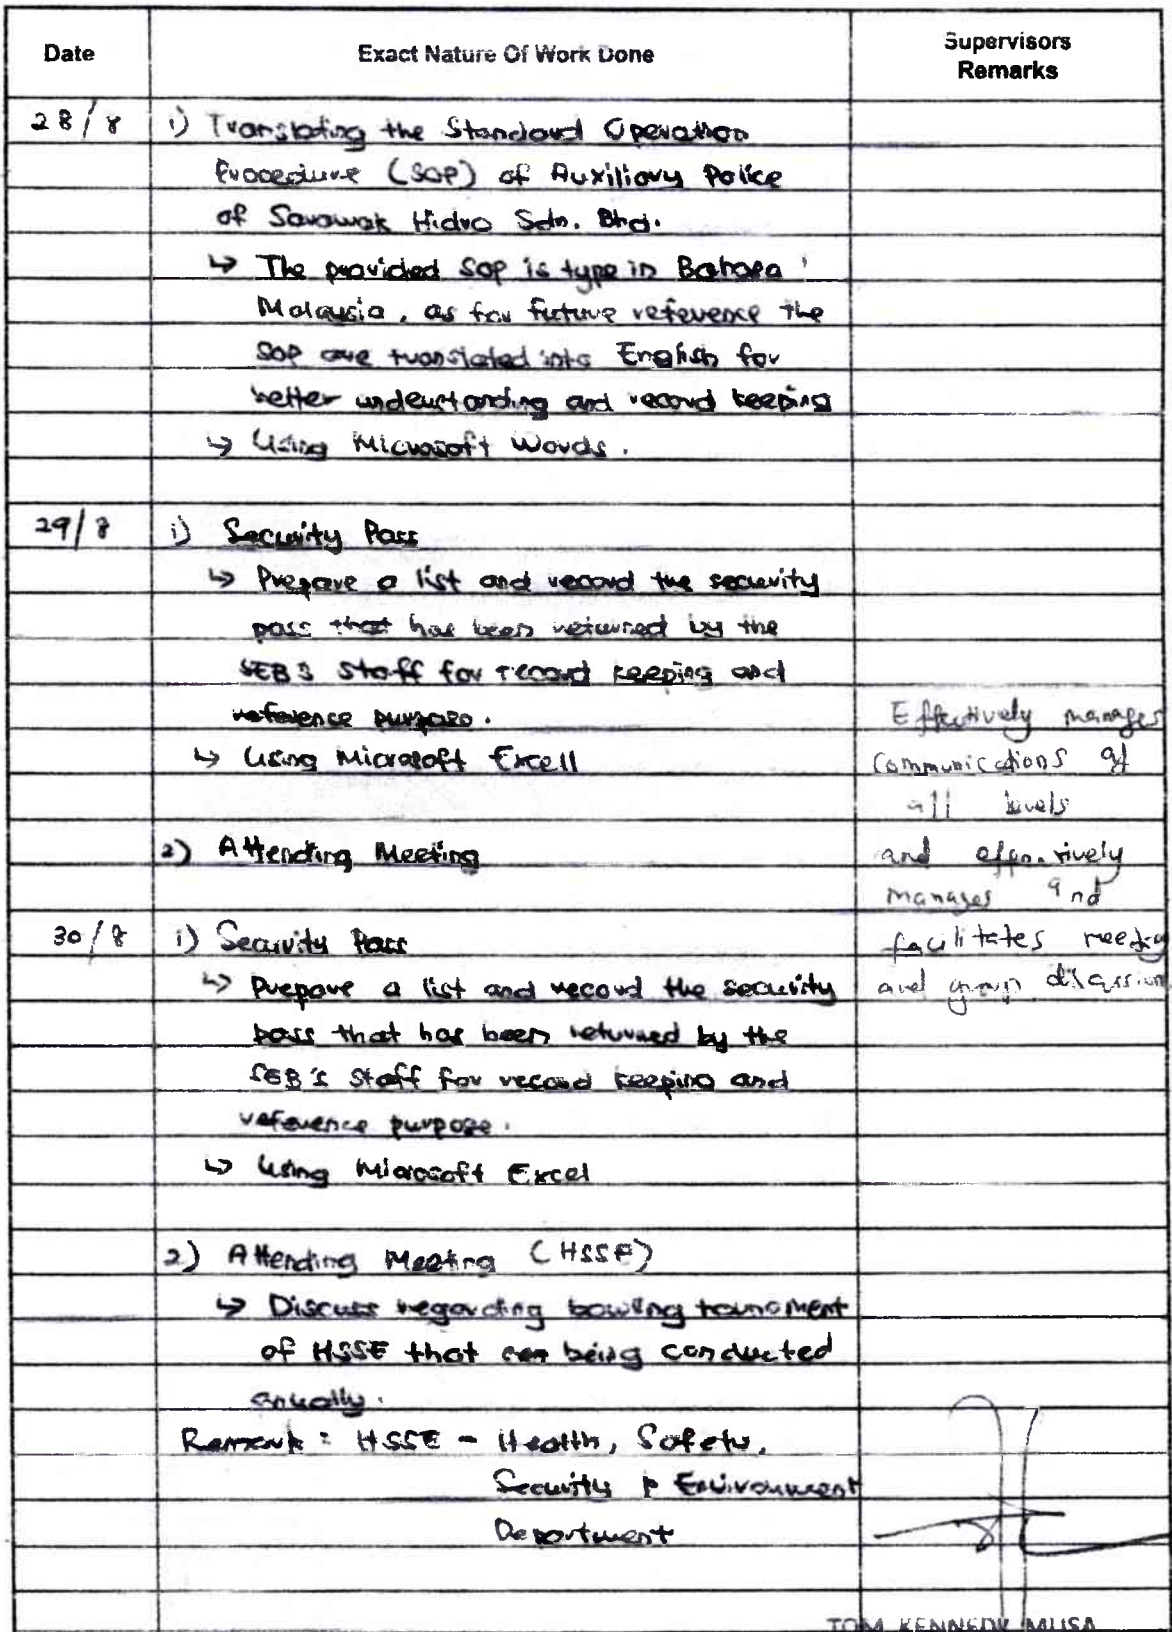 Date
Exact Nature Of Work Done
Supervisors
Remarks
28/8
1) Translating the Standard Operation
Procedure (SOP) of Auxiliary Police
of Sarawak Hidro Sdn. Bhd.
↳ The provided SOP is type in Bahasa
Malaysia, as for future reference the
SOP are translated into English for
better understanding and record keeping
↳ Using Microsoft Words.
29/8
1) Security Pass
↳ Prepare a list and record the security
pass that has been returned by the
SEB's Staff for record keeping and
reference purpose.
↳ Using Microsoft Excell
2) Attending Meeting
Effectively manages
communications at
all levels
and effectively
manages and
facilitates meeting
and group discussion
30/8
1) Security Pass
↳ Prepare a list and record the security
pass that has been returned by the
SEB's Staff for record keeping and
reference purpose.
↳ Using Microsoft Excel
2) Attending Meeting (HSSE)
↳ Discuss regarding bowling tournament
of HSSE that being conducted
anually.
Remark : HSSE - Health, Safety,
Security & Environment
Department
TOM KENNEDY MUSA